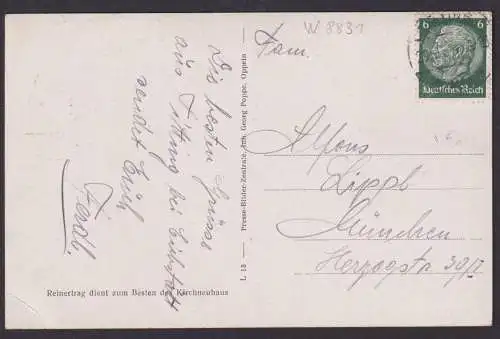 W 8831
6 6
Deutsches Reich
Die besten Grüsse
aus Titting bei Eichstätt
sendet Euch
Ferdl.
Fam.
Alfons
Lippl
München
Herzogstr. 39/I
L 18 — Presse-Bilder-Zentrale, Inh. Georg Poppe, Oppeln
Reinertrag dient zum Besten des Kirchneubaus